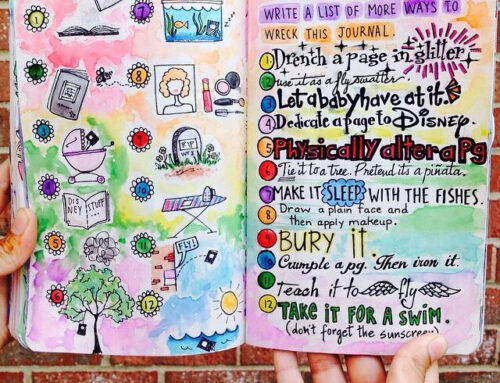 1
7
2
8
3
9
R.I.P
4
10
DIS
NEY
STUFF...
5
11
FLY!
6
12
WRITE A LIST OF MORE WAYS TO
WRECK THIS JOURNAL.
1 Drench a page in glitter
2 use it as a fly swatter.
3 Let a baby have at it.
4 Dedicate a page to DISNEY.
5 Physically alter a Pg
6 Tie it to a tree. Pretend its a pinata.
7 MAKE IT SLEEP WITH THE FISHES.
8 Draw a plain face and
then apply makeup.
9 BURY it.
10 Crumple a pg. Then iron it.
11 Teach it to fly
12 TAKE IT FOR A SWIM.
(don't forget the sunscreen)